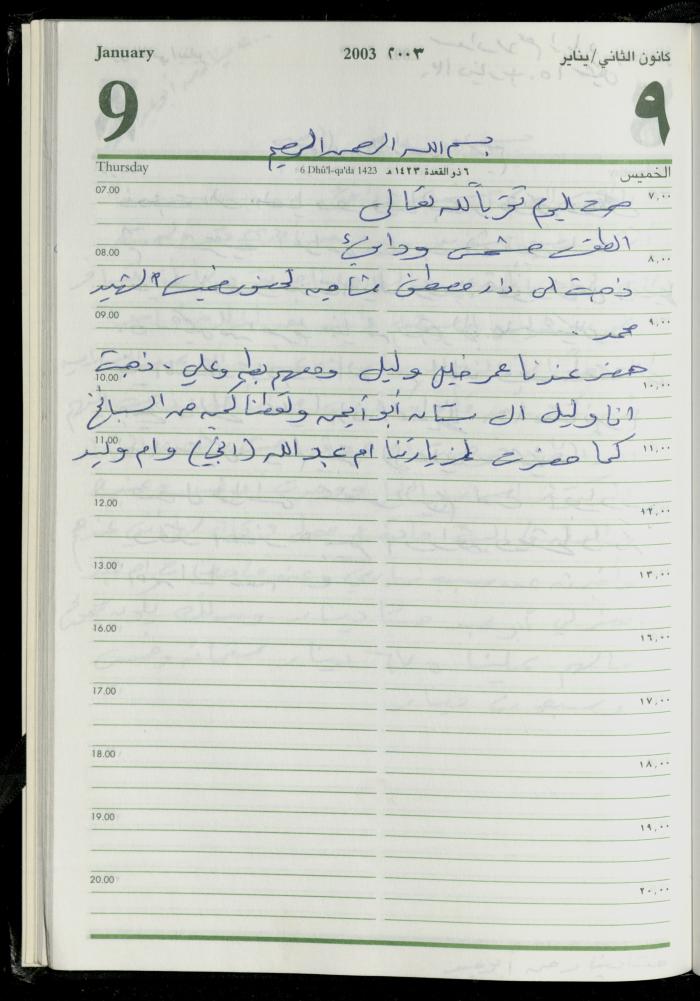 January 2003 ٢٠٠٣ كانون الثاني/يناير
9 ٩
بسم الله الرحمن الرحيم
Thursday 6 Dhû'l-qa'da 1423 ٦ ذو القعدة ١٤٢٣ هـ الخميس
07.00 ٧,٠٠
صمت اليوم تقرباً لله تعالى
الطقس مشمس ودافئ
08.00 ٨,٠٠
ذهبت الى دار مصطفى شاهين لحضور الشهيد
09.00 ٩,٠٠
محمد .
حضر عندنا عمر خليل وليل ومعهم وعلي . ذهبت
10.00 ١٠,٠٠
انا وليل الى بستان أبو أيمن ولقطنا كمية من السبانخ
11.00 ١١,٠٠
كما حضرت لزيارتنا ام عبد الله () وام وليد
12.00 ١٢,٠٠
13.00 ١٣,٠٠
16.00 ١٦,٠٠
17.00 ١٧,٠٠
18.00 ١٨,٠٠
19.00 ١٩,٠٠
20.00 ٢٠,٠٠